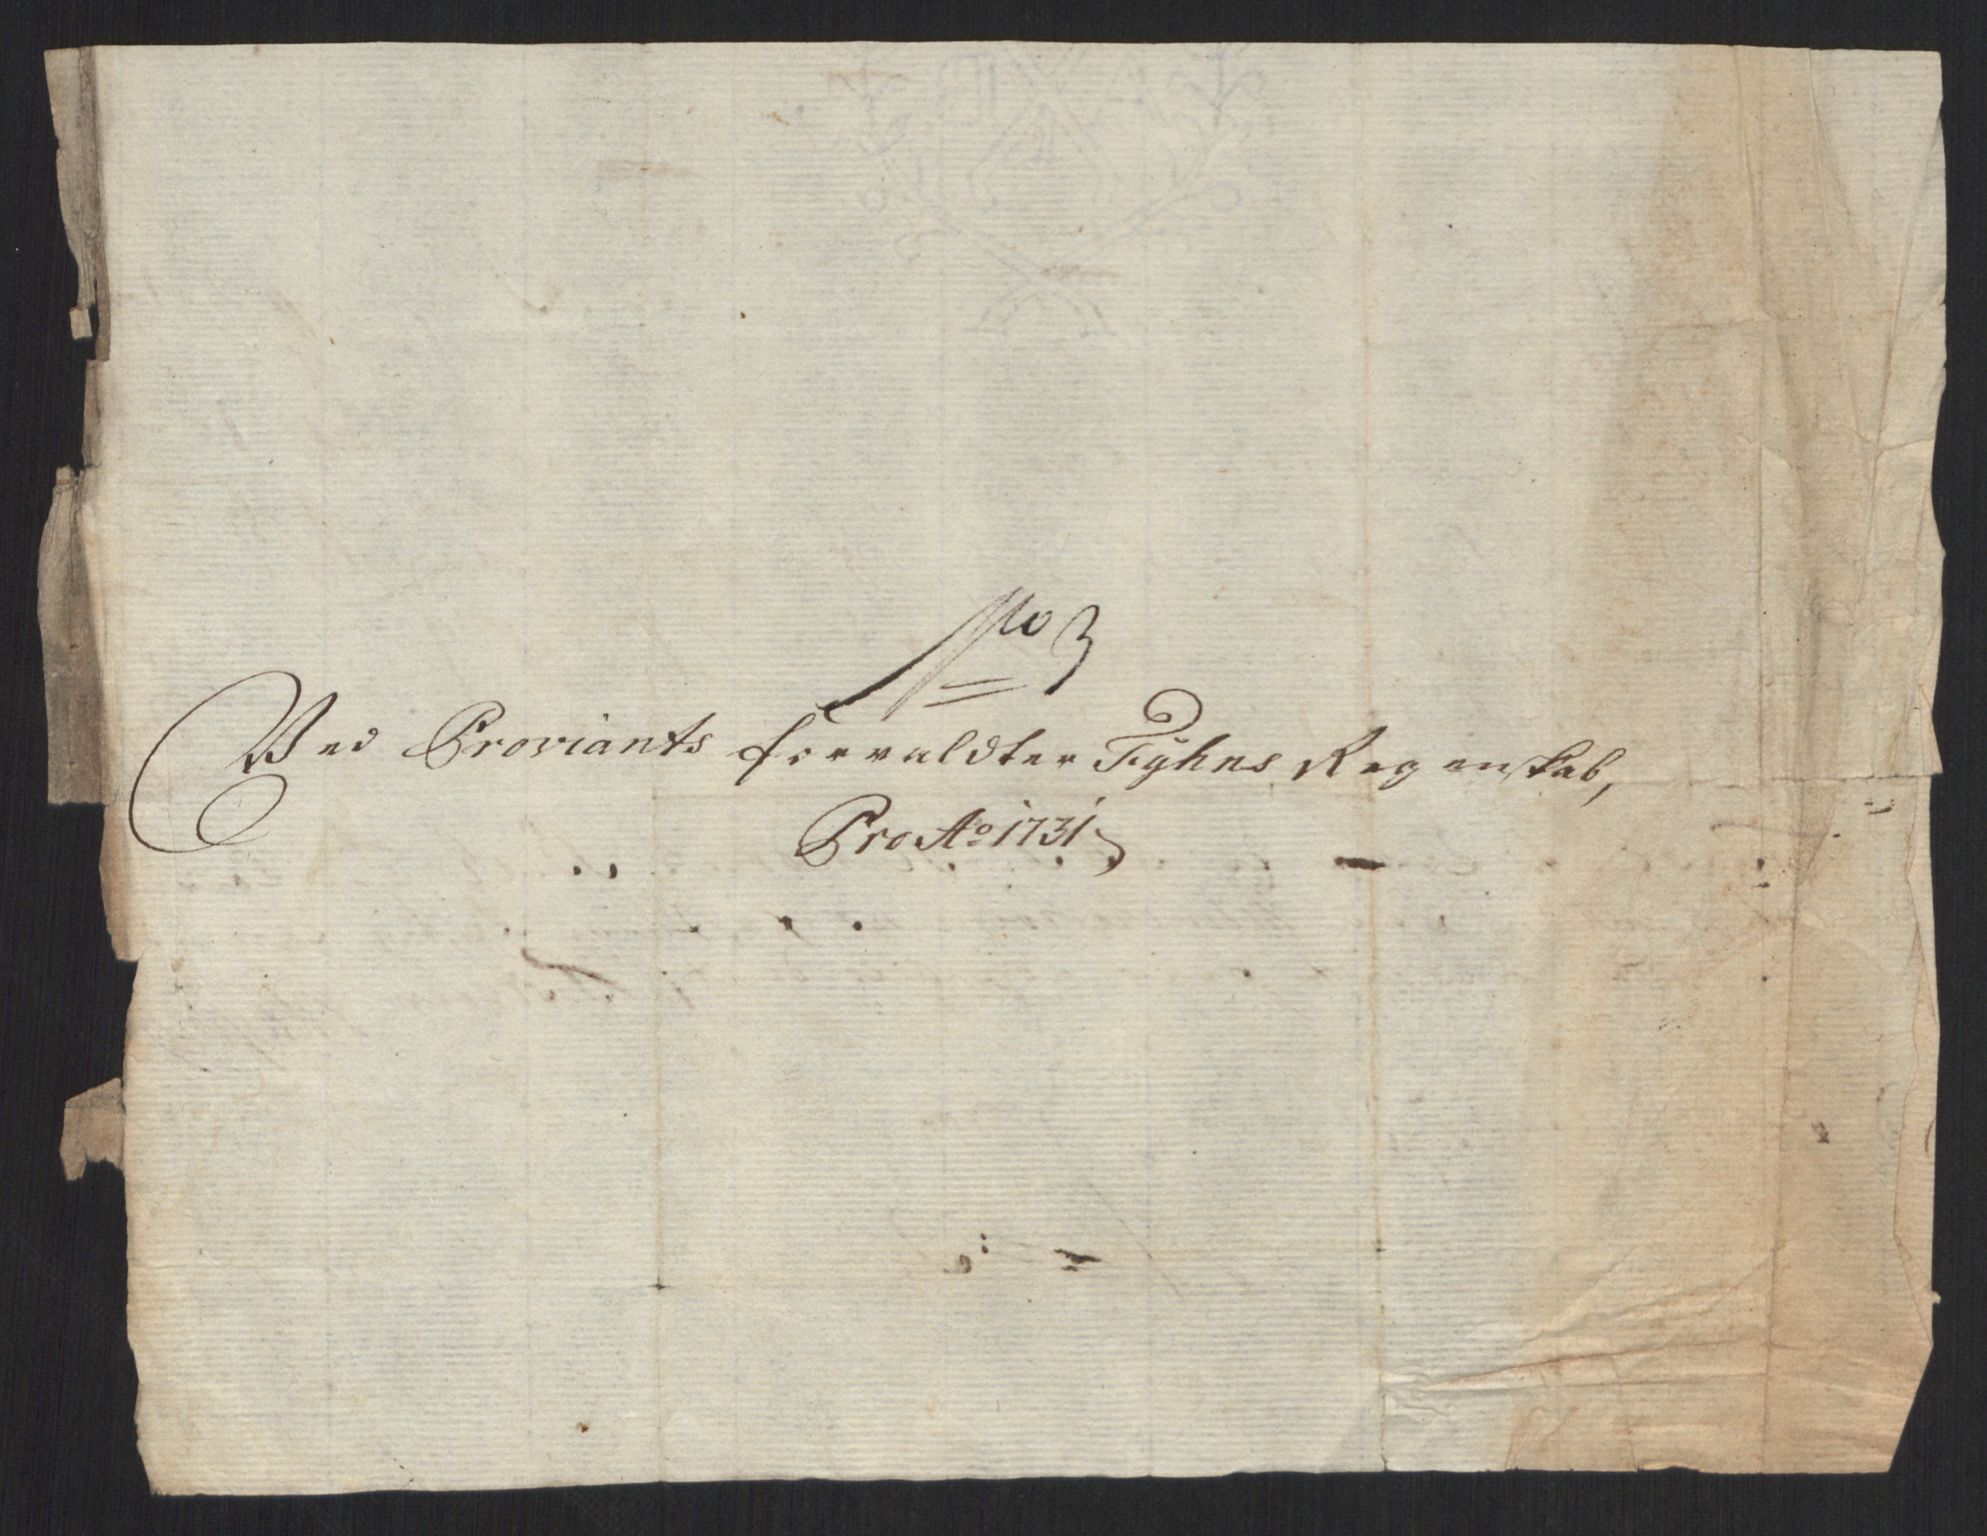 No 3
Ved Proviants forvaldter Fÿhns Regenskab,
Pro Ao 1731